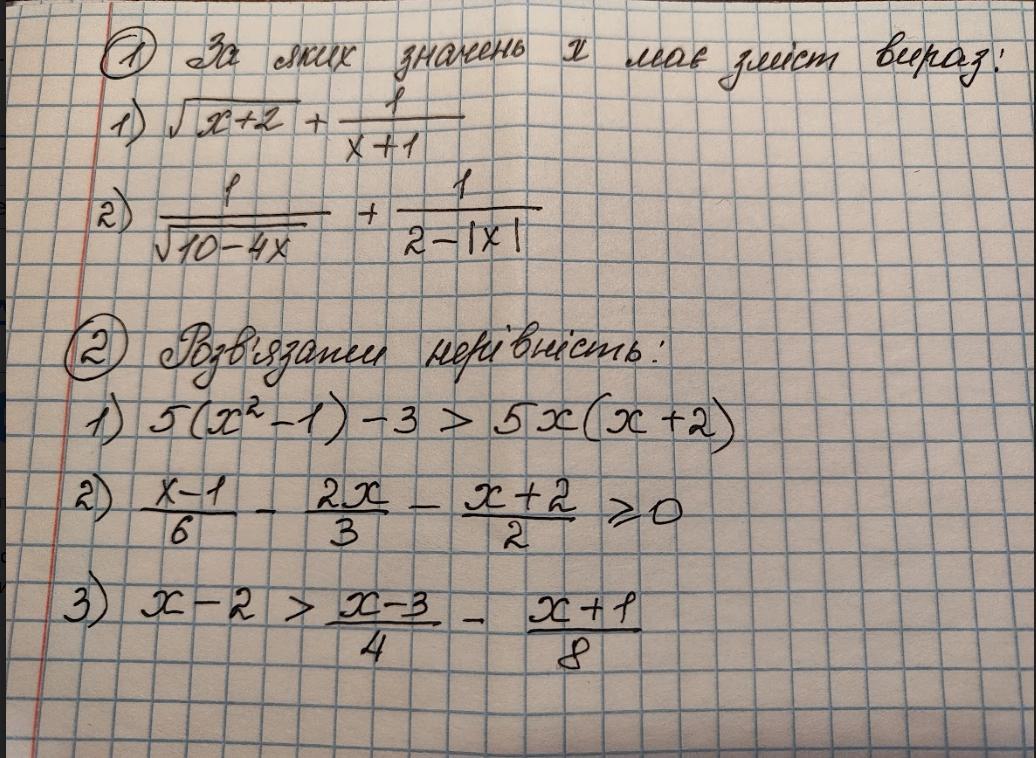 ① За яких значень x має зміст вираз:
1) √(x+2) + 1/(x+1)
2) 1/√(10-4x) + 1/(2-|x|)
② Розв'язати нерівність:
1) 5(x²-1)-3 > 5x(x+2)
2) (x-1)/6 - 2x/3 - (x+2)/2 ⩾ 0
3) x-2 > (x-3)/4 - (x+1)/8